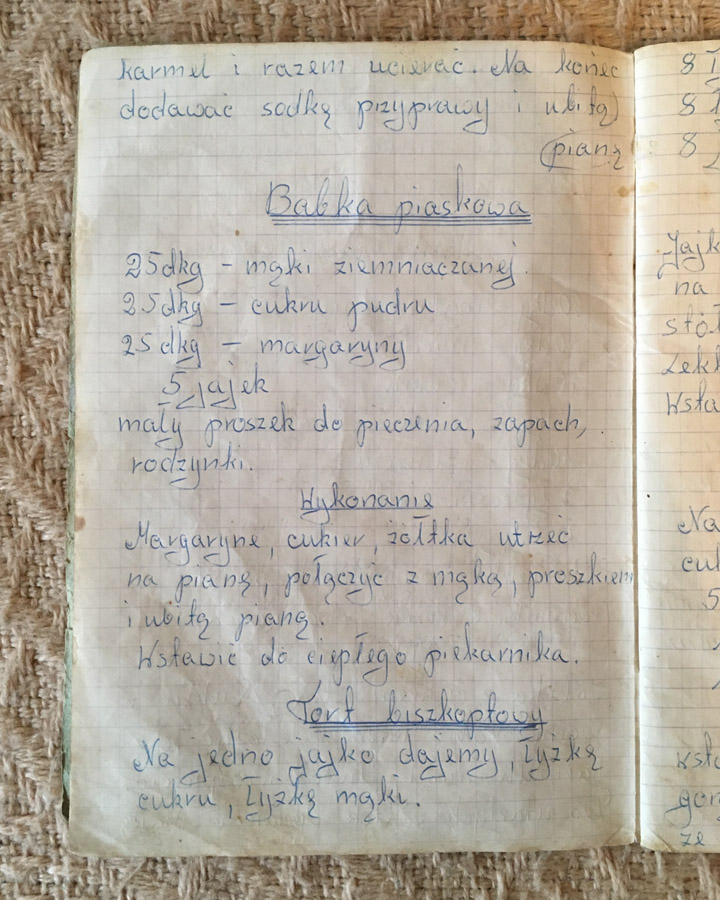 karmel i razem ucierać. Na koniec
dodawać sodkę przyprawy i ubitą)
(pianę
Babka piaskowa
25dkg - mąki ziemniaczanej.
25dkg - cukru pudru
25 dkg - margaryny
5 jajek
mały proszek do pieczenia, zapach,
rodzynki.
Wykonanie
Margarynę, cukier, żółtka utrzeć
na pianę, połączyć z mąką, proszkiem
i ubitą pianą.
Wstawić do ciepłego piekarnika.
Tort biszkoptowy
Na jedno jajko dajemy, łyżkę
cukru, łyżkę mąki.
8
8
8
Jajk
na
stó
Lekk
Wsta
Na
cuk
5
wsta
gor
ze